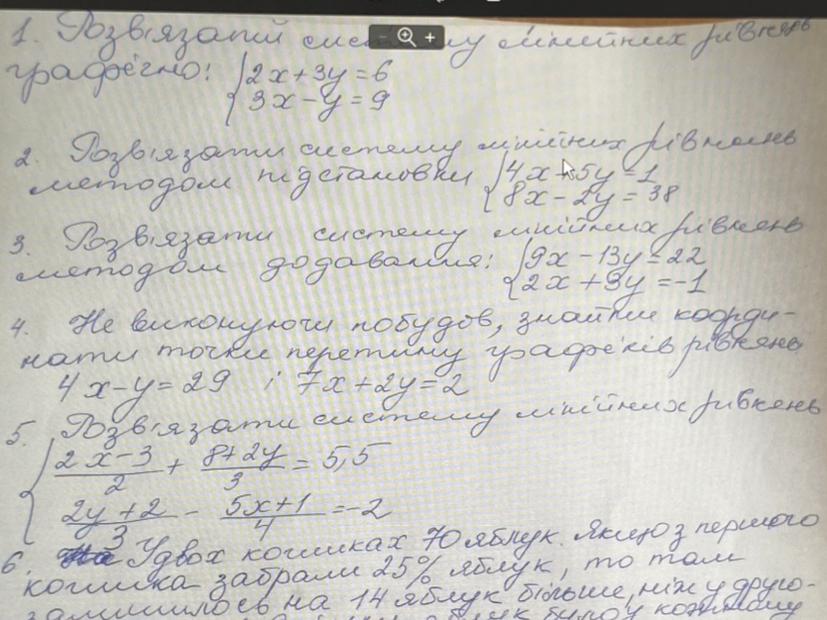 1. Розв'язати систему лінійних рівнянь
графічно: { 2x+3y=6
3x-y=9
2. Розв'язати систему лінійних рівнянь
методом підстановки { 4x+5y=1
8x-2y=38
3. Розв'язати систему лінійних рівнянь
методом додавання: { 9x-13y=22
2x+3y=-1
4. Не виконуючи побудов, знайти коорди-
нати точки перетину графіків рівнянь
4x-y=29 і 7x+2y=2
5. Розв'язати систему лінійних рівнянь
{ (2x-3)/2 + (8+2y)/3 = 5,5
(2y+2)/3 - (5x+1)/4 = -2
6. У двох кошиках 70 яблук. Якщо з першого
кошика забрали 25% яблук, то там
залишилось на 14 яблук більше, ніж у друго-
яблук було у кожному